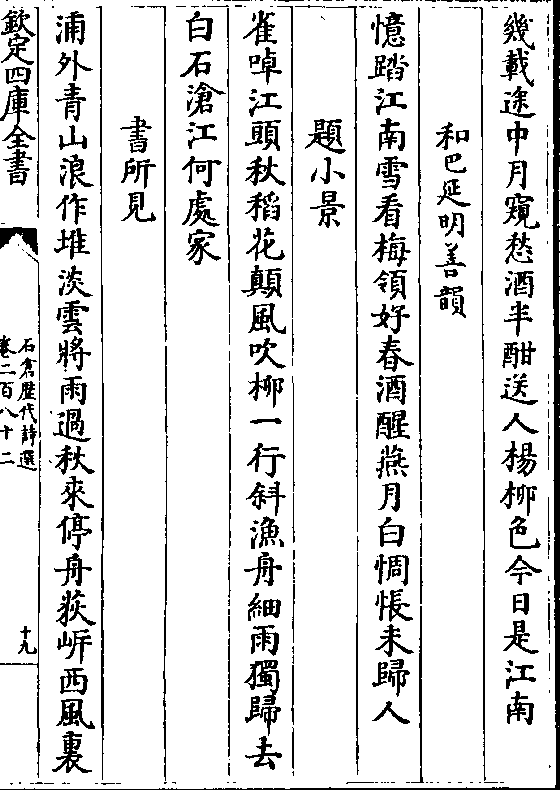 幾載途中月窺愁酒半酣送人楊柳色今日是江南
和巴延明善韻
憶踏江南雪看梅領好春酒醒燕月白惆悵未歸人
題小景
雀啅江頭秋稻花顛風吹柳一行斜漁舟細雨獨歸去
白石滄江何處家
書所見
浦外青山浪作堆淡雲將雨過秋來停舟荻㟁西風裏
欽定四庫全書
石倉歷代詩選
卷二百八十二
十九